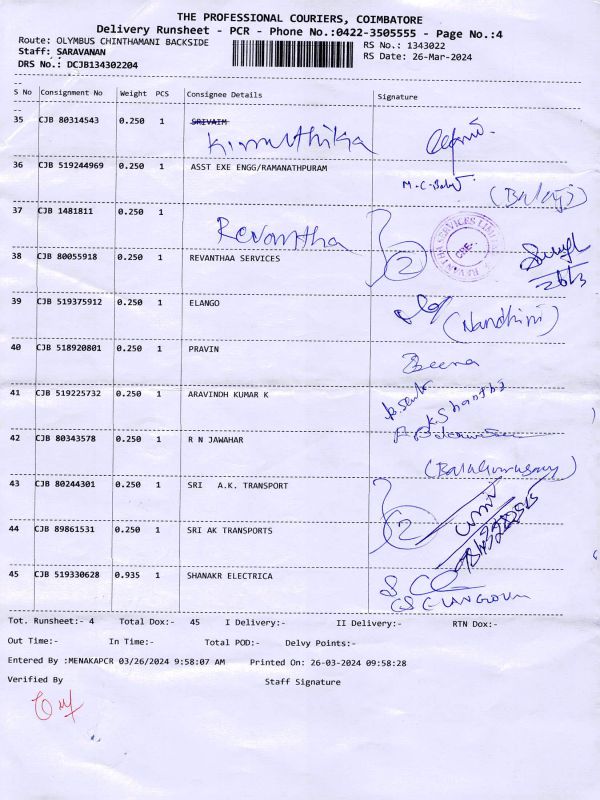 THE PROFESSIONAL COURIERS, COIMBATORE
Delivery Runsheet - PCR - Phone No.:0422-3505555 - Page No.:4
Route: OLYMBUS CHINTHAMANI BACKSIDE
RS No.: 1343022
Staff: SARAVANAN
RS Date: 26-Mar-2024
DRS No.: DCJB134302204
S No Consignment No Weight PCS Consignee Details Signature
35 CJB 80314543 0.250 1 SRIVAIM
Kiruthika
36 CJB 519244969 0.250 1 ASST EXE ENGG/RAMANATHPURAM
M-C-Balaji (Balaji)
37 CJB 1481811 0.250 1
Revantha 2
38 CJB 80055918 0.250 1 REVANTHAA SERVICES
26/3
39 CJB 519375912 0.250 1 ELANGO
(Nandhini)
40 CJB 518920801 0.250 1 PRAVIN
Beena
41 CJB 519225732 0.250 1 ARAVINDH KUMAR K
K.Shanthi
42 CJB 80343578 0.250 1 R N JAWAHAR
(Balagurusamy)
43 CJB 80244301 0.250 1 SRI A.K. TRANSPORT
2
44 CJB 89861531 0.250 1 SRI AK TRANSPORTS
45 CJB 519330628 0.935 1 SHANAKR ELECTRICA
Tot. Runsheet:- 4 Total Dox:- 45 I Delivery:- II Delivery:- RTN Dox:-
Out Time:- In Time:- Total POD:- Delvy Points:-
Entered By :MENAKAPCR 03/26/2024 9:58:07 AM Printed On: 26-03-2024 09:58:28
Verified By Staff Signature